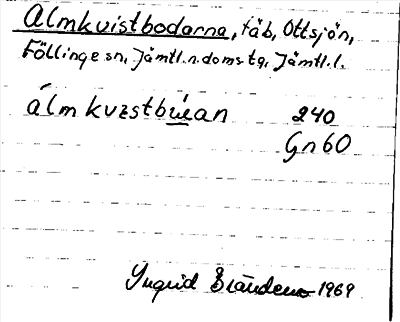 Almkvistbodarna, fäb, Ottsjön,
Föllinge sn, Jämtl.n.domstg, Jämtl.l.
álmkvɪstbù̲an 240
Gn60
Yngrid 1969